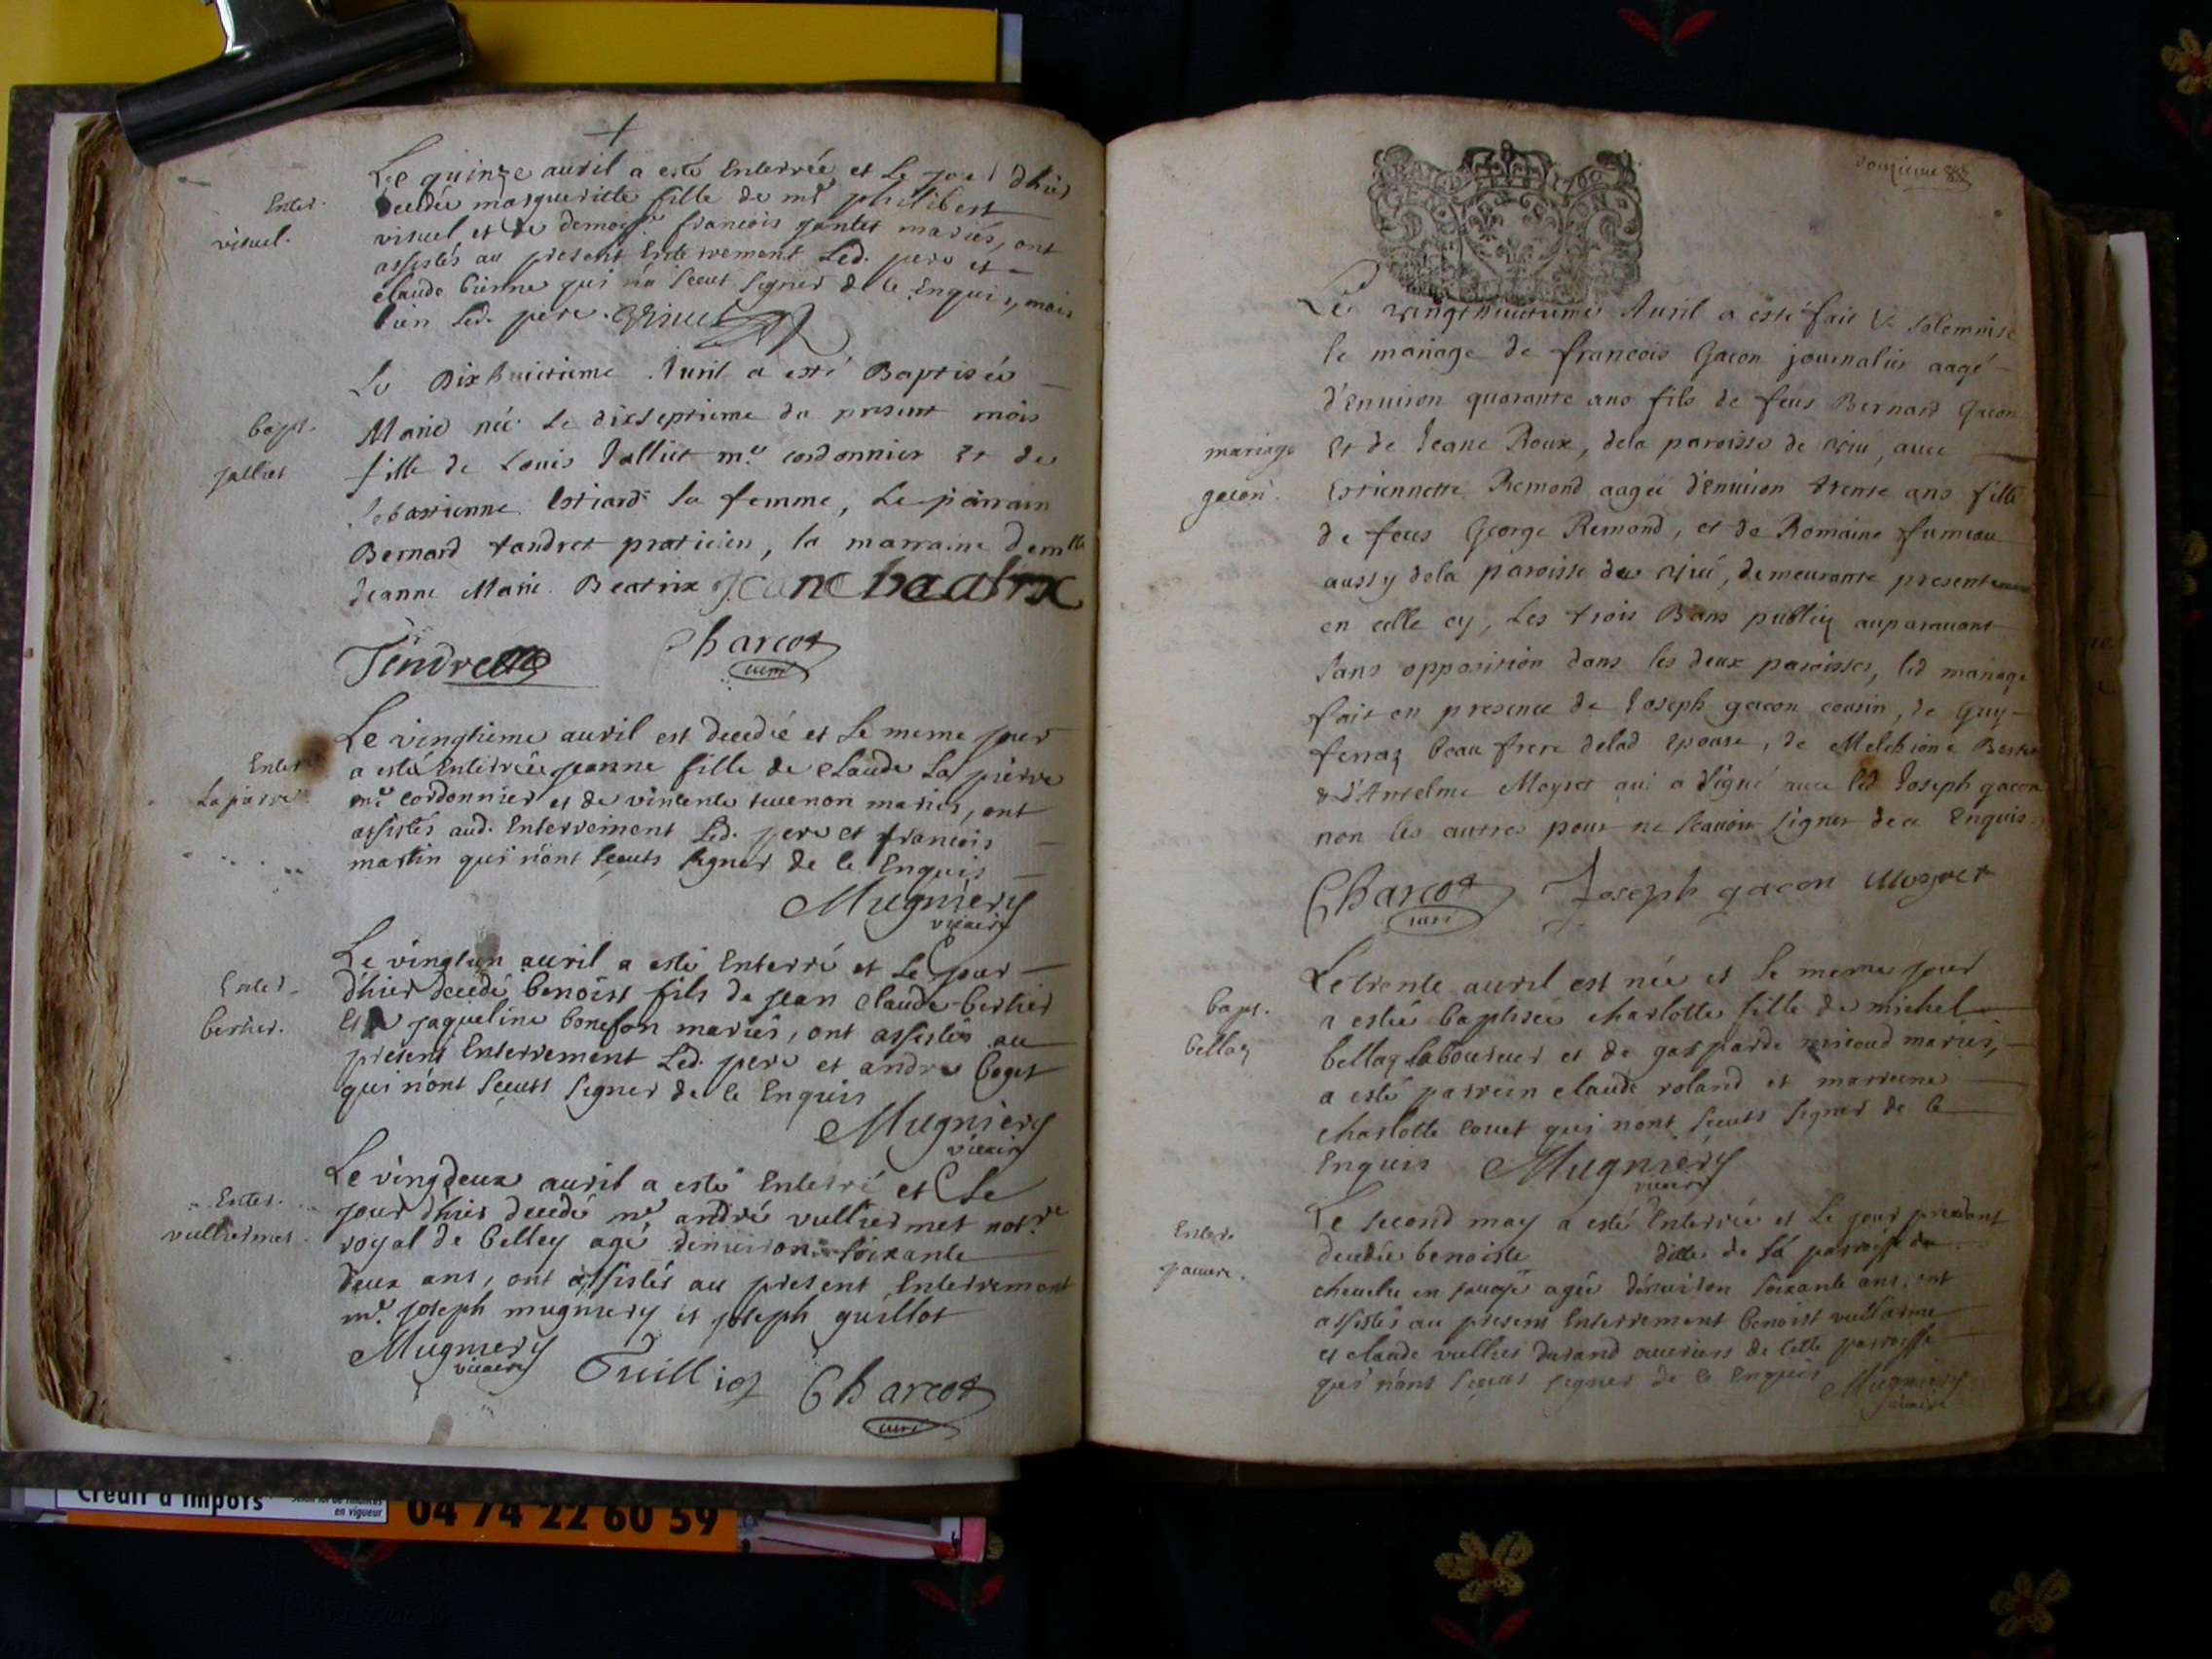 Le quinze auril a esté Enterrée et Le jour d'hier
Enter.
decedée margueritte fille de mr philibert
visuel.
visuel et de demoise francois gontet mariés, ont
assistés au present Enterrement Led. pere et
claude qui n'a sceut signer de ce Enquis, mais
bien Led. pere.
Le Dixhuitieme Auril a esté Baptisée
bapt.
Marie née le dixseptieme du present mois
jalliet
fille de Louis Jalliet me cordonnier Et de
Sebastienne sa femme, Le parrain
Bernard tandret praticien, la marraine demlle
Jeanne Marie Beatrix Jeane beatrix
Tendret Charcot
curé
Le vingtieme auril est decedée et le meme jour
Enter
a estée Enterrée jeanne fille de claude La pierre
La pierre
me cordonnier et de vincente mariés, ont
assistés aud. Enterrement Led. pere et francois
martin qui n'ont sceuts signer de ce Enquis
Mugniery
vicaire
Le vingtun auril a esté Enterré et Le jour
Enter.
d'hier decedé benoist fils de jean claude bertier
bertier.
Et de jaqueline bonefon mariés, ont assistés au
present Enterrement Led. pere et andre boget
qui n'ont sceuts signer de ce Enquis
Mugniery
vicaire
Le vingdeux auril a esté Enterré et Le
Enter.
jour d'hier decedé me andré vulliermet notre
vulliermet.
royal de belley agé d'enuiron soixante
deux ans, ont assistés au present Enterrement
mr. joseph mugniery et joseph guillot
Mugniery
vicaire
Charcot
curé
Le vingthuitieme Auril a esté fait & solemnisé
le mariage de francois Gacon journalier aagé
d'enuiron quarante ans fils de feus Bernard Gacon
mariage
Et de Jeane Roux, dela paroisse de , auec
gacon.
Estiennette Remond aagée d'enuiron trente ans fille
de feus George Remond, et de Romaine fumeau
aussy dela paroisse de , demeurante presentement
en celle cy, Les trois Bans publiez auparauant
sans opposition dans les deux paroisses, led mariage
fait en presence de Joseph gacon cousin, de Guy
ferraz beau frere delad epouse, de Melchione
& d'Anselme Moyret qui a signé auec led Joseph gacon
non les autres pour ne scauoir signer de ce Enquis.
Charcot Joseph gacon Moyret
curé
Le trente auril est née et le meme jour
bapt.
a estée baptisée charlotte fille de michel
bellaz
bellaz laboureur et de gasparde micoud mariés,
a esté parrein claude roland et marreine
charlotte couet qui n'ont sceuts signer de ce
Enquis Mugniery
vicaire
Le second may a estée Enterrée et Le jour precedant
Enter.
decedée benoiste ditte de la parroisse de
pauure.
en sauoye agée d'enuiron soixante ans, ont
assistés au present Enterrement benoist vuillerme
et claude vullier durand ouuriers de cette parroisse
qui n'ont sceuts signer de ce Enquis Mugniery
vicaire
Crédit d'impôts
en vigueur
04 74 22 60 59